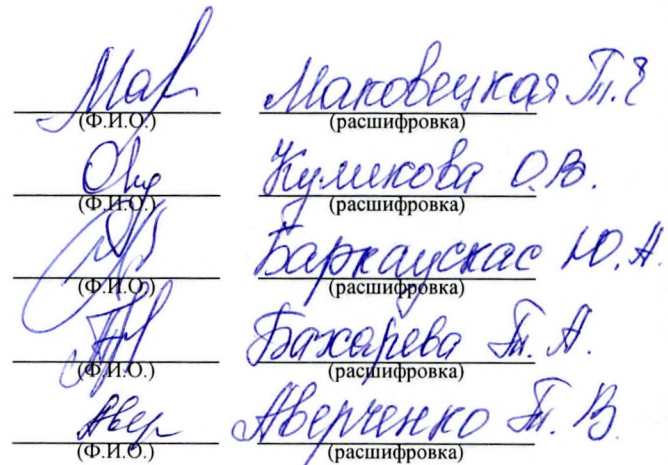 Маковецкая Т.
(Ф.И.О.) (расшифровка)
Куликова О.В.
(Ф.И.О.) (расшифровка)
Баркаускас Ю.А.
(Ф.И.О.) (расшифровка)
Бахарева Т.А.
(Ф.И.О.) (расшифровка)
Авер Аверченко Т.В.
(Ф.И.О.) (расшифровка)